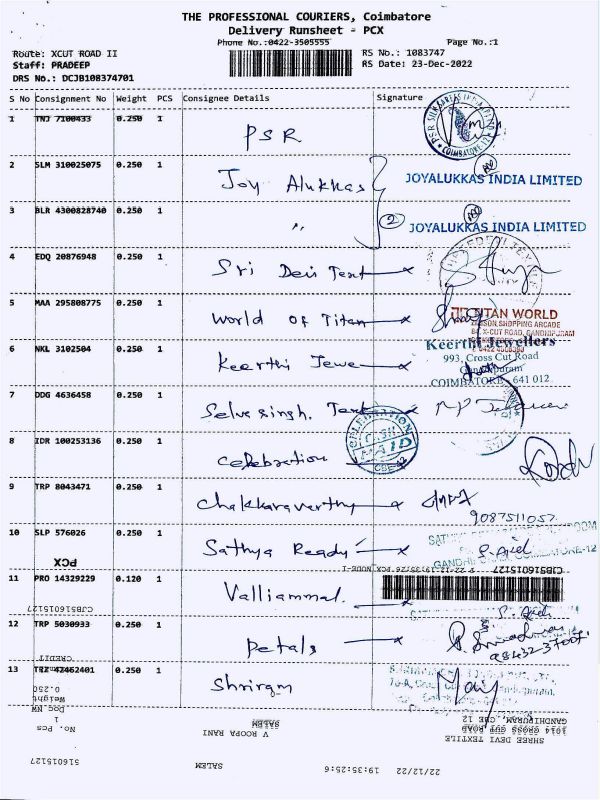 THE PROFESSIONAL COURIERS, Coimbatore
Delivery Runsheet - PCX
Phone No.:0422-3505555 Page No.:1
Route: XCUT ROAD II RS No.: 1083747
Staff: PRADEEP RS Date: 23-Dec-2022
DRS No.: DCJB108374701
S No Consignment No Weight PCS Consignee Details Signature
1 TNJ 7100433 0.250 1 PSR
2 SLM 310025075 0.250 1 Joy Alukkas JOYALUKKAS INDIA LIMITED
3 BLR 4300828740 0.250 1 〃 2 JOYALUKKAS INDIA LIMITED
4 EDQ 20876948 0.250 1 Sri Devi Text
5 MAA 295808775 0.250 1 World of Titan TITAN WORLD
6 NKL 3102504 0.250 1 Keerthi Jewe Keerthi Jewellers
993, Cross Cut Road
Gandhipuram
COIMBATORE - 641 012
7 DDG 4636458 0.250 1 Selvasingh. Text
CELEBRATION
CASH
PAID
CBE-12
8 IDR 100253136 0.250 1 celebration
9 TRP 8043471 0.250 1 Chakkaraverthy
9087511057
10 SLP 576026 0.250 1 Sathya Ready
PCX CJB516015127
11 PRO 14329229 0.120 1 Valliammal
CJB516015127
12 TRP 5030933 0.250 1 Petals
CREDIT
13 TRZ 42462401 0.250 1 Shriram
Weight
0.250
Doc NW
No. Pcs
1
V ROOPA RANI
SALEM
SHREE DEVI TEXTILE
GANDHIPURAM, CBE 12
516015127 SALEM 19:35:25:6 22/12/22